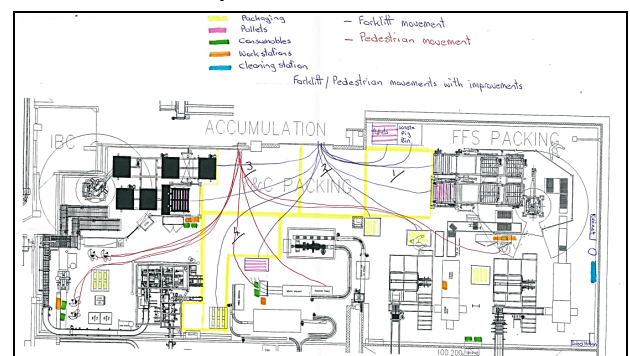 Packaging
Pallets
Consumables
Work stations
Cleaning station
— Forklift movement
— Pedestrian movement
Forklift / Pedestrian movements with improvements
ACCUMULATION
IBC
FFS PACKING
&C PACKING
1
2
3
4
100,200